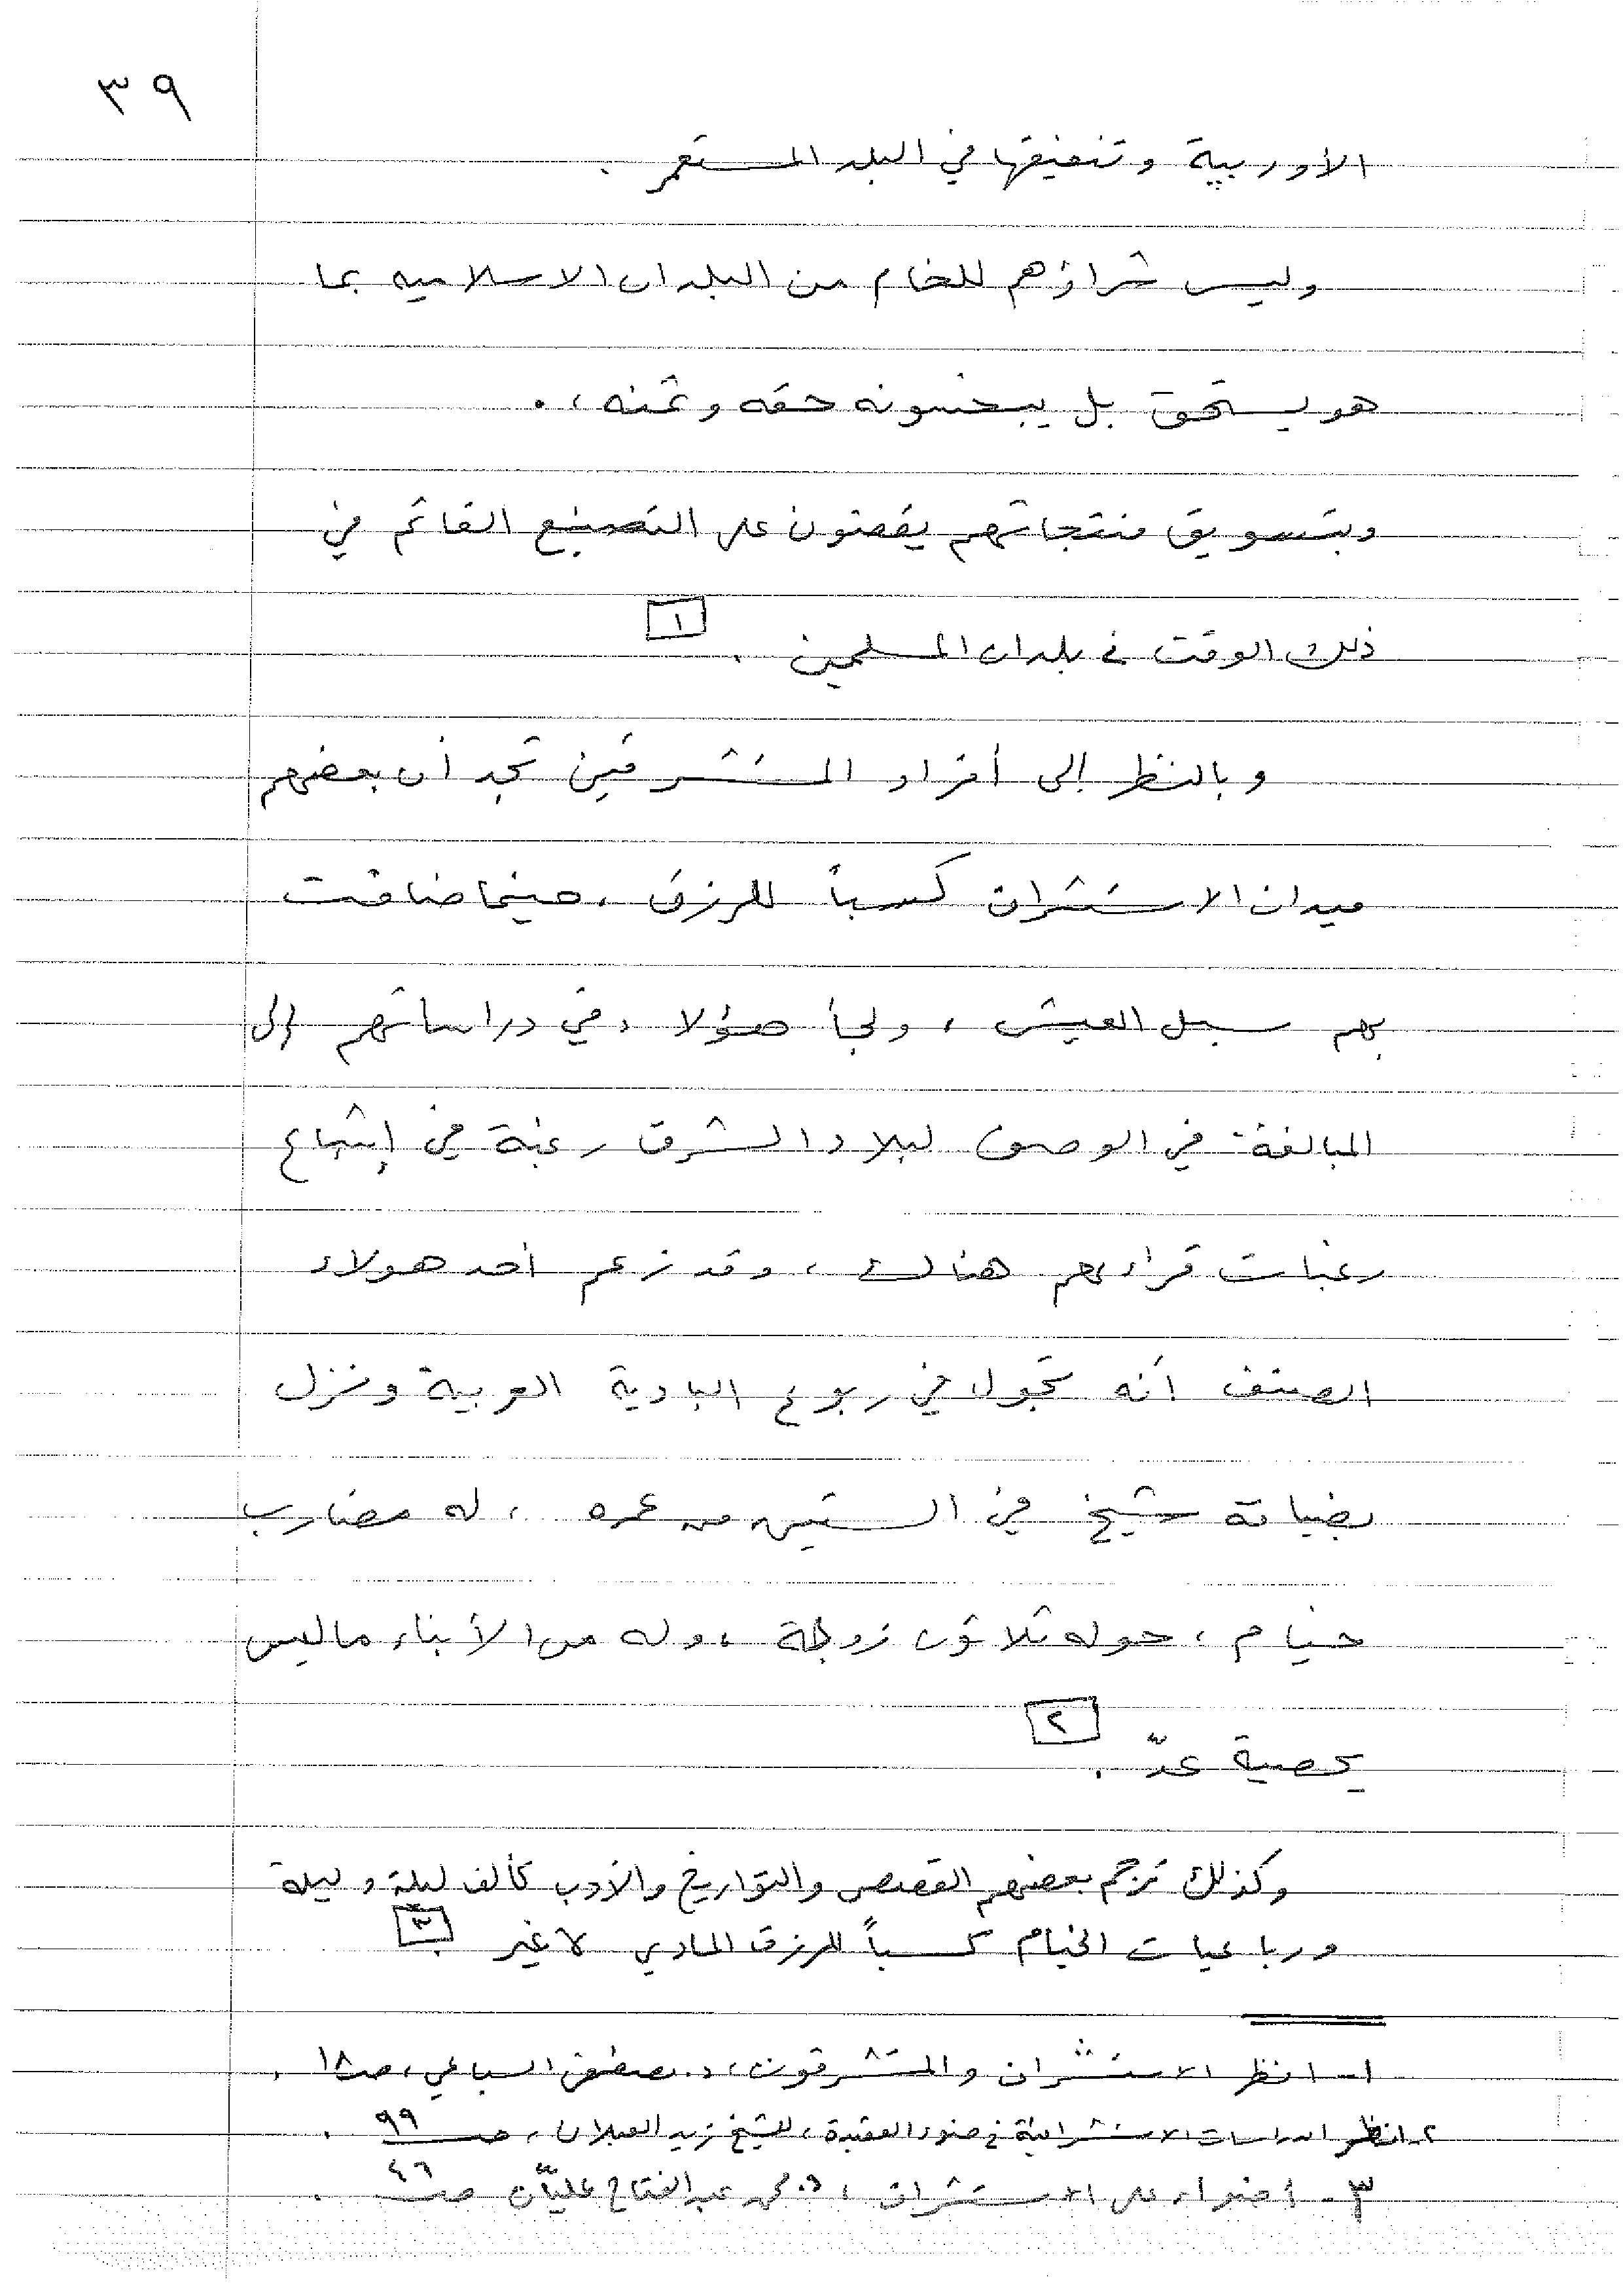 ٣٩
الأوربية وتنفيقها في البلد المستعمر .
وليس شراؤهم للخام من البلدان الاسلاميه بما
هو يستحق بل يبخسونه حقه وثمنه ، .
وبتسويق منتجاتهم يقضون على التصنيع القائم في
ذلك الوقت في بلدان المسلمين . ١
وبالنظر إلى أفراد المستشرقين نجد أن بعضهم
ميدان الاستشراق كسباً للرزق ، حينما ضاقت
بهم سبل العيش ، ولجأ هؤلاء في دراساتهم إلى
المبالغة في الوصف لبلاد الشرق رغبة في إشباع
رغبات قراءهم هناك ، وقد زعم أحد هولاء
الصنف أنه تجول في ربوع البادية العربية ونزل
بضيافة شيخ في الستين من عمره ، له مضارب
خيام ، حوله ثلاثون زوجة ، وله من الأبناء ما ليس
يحصية عدّ . ٢
وكذلك ترجم بعضهم القصص والتواريخ والأدب كألف ليلة وليلة
ورباعيات الخيام كسباً للرزق المادي لا غير ٣
١- انظر الاستشراق والمستشرقون ، د. مصطفى السباعي ، صـ ١٨ .
٢- انظر الدراسات الاستشراقية في ضوء العقيدة ، للشيخ زيد العبلان ، صـ ٩٩ .
٣- أضواء على الاستشراق ، د. محمد عبد الفتاح عليّان صـ ٤٦ .